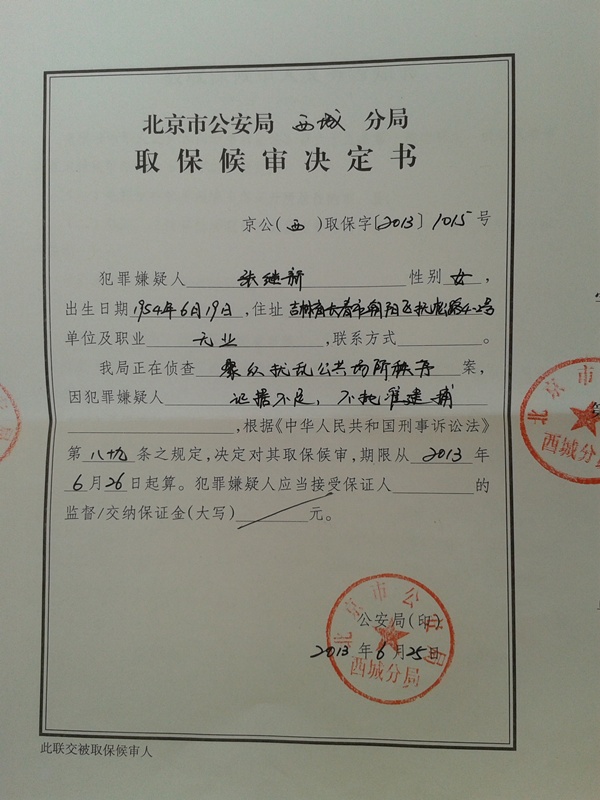 北京市公安局 西城 分局
取保候审决定书
京公(西)取保字[2013]1015号
犯罪嫌疑人 张继新 性别 女,
出生日期1954年6月19日,住址吉林省长春市朝阳区 4-2号
单位及职业 无业,联系方式。
我局正在侦查 聚众扰乱公共场所秩序 案,
因犯罪嫌疑人 证据不足,不批准逮捕
,根据《中华人民共和国刑事诉讼法》
第 八十九 条之规定,决定对其取保候审,期限从 2013 年
6月26日起算。犯罪嫌疑人应当接受保证人 的
监督/交纳保证金(大写) 元。
公安局(印)
2013年6月25日
北京市公安局
西城分局
此联交被取保候审人
北京市
西城分